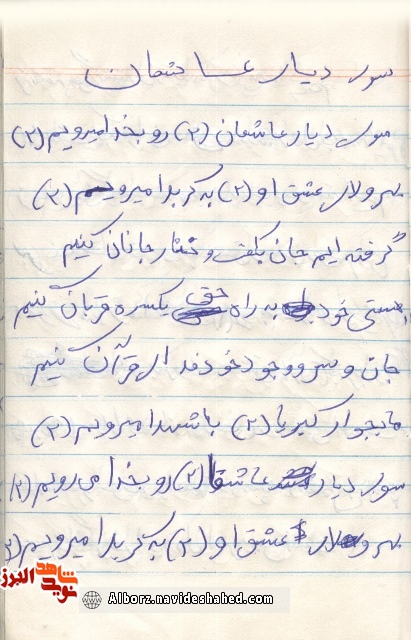 سوی دیار عاشقان
سوی دیار عاشقان (۲) رو بخدا میرویم (۲)
بهر ولای عشق او (۲) به کربلا میرویم (۲)
گرفته ایم جان بکف و نثار جانان کنیم
هستی خود به راه حق یکسره قربان کنیم
جان و سر و وجود خود فدای قرآن کنیم
ما بجوار کبریا (۲) با شهدا میرویم (۲)
سوی دیار عاشقا (۲) رو بخدا می رویم (۲)
بهر ولای عشق او (۲) به کربلا میرویم (۲)
نوید شاهد البرز
Alborz.navideshahed.com